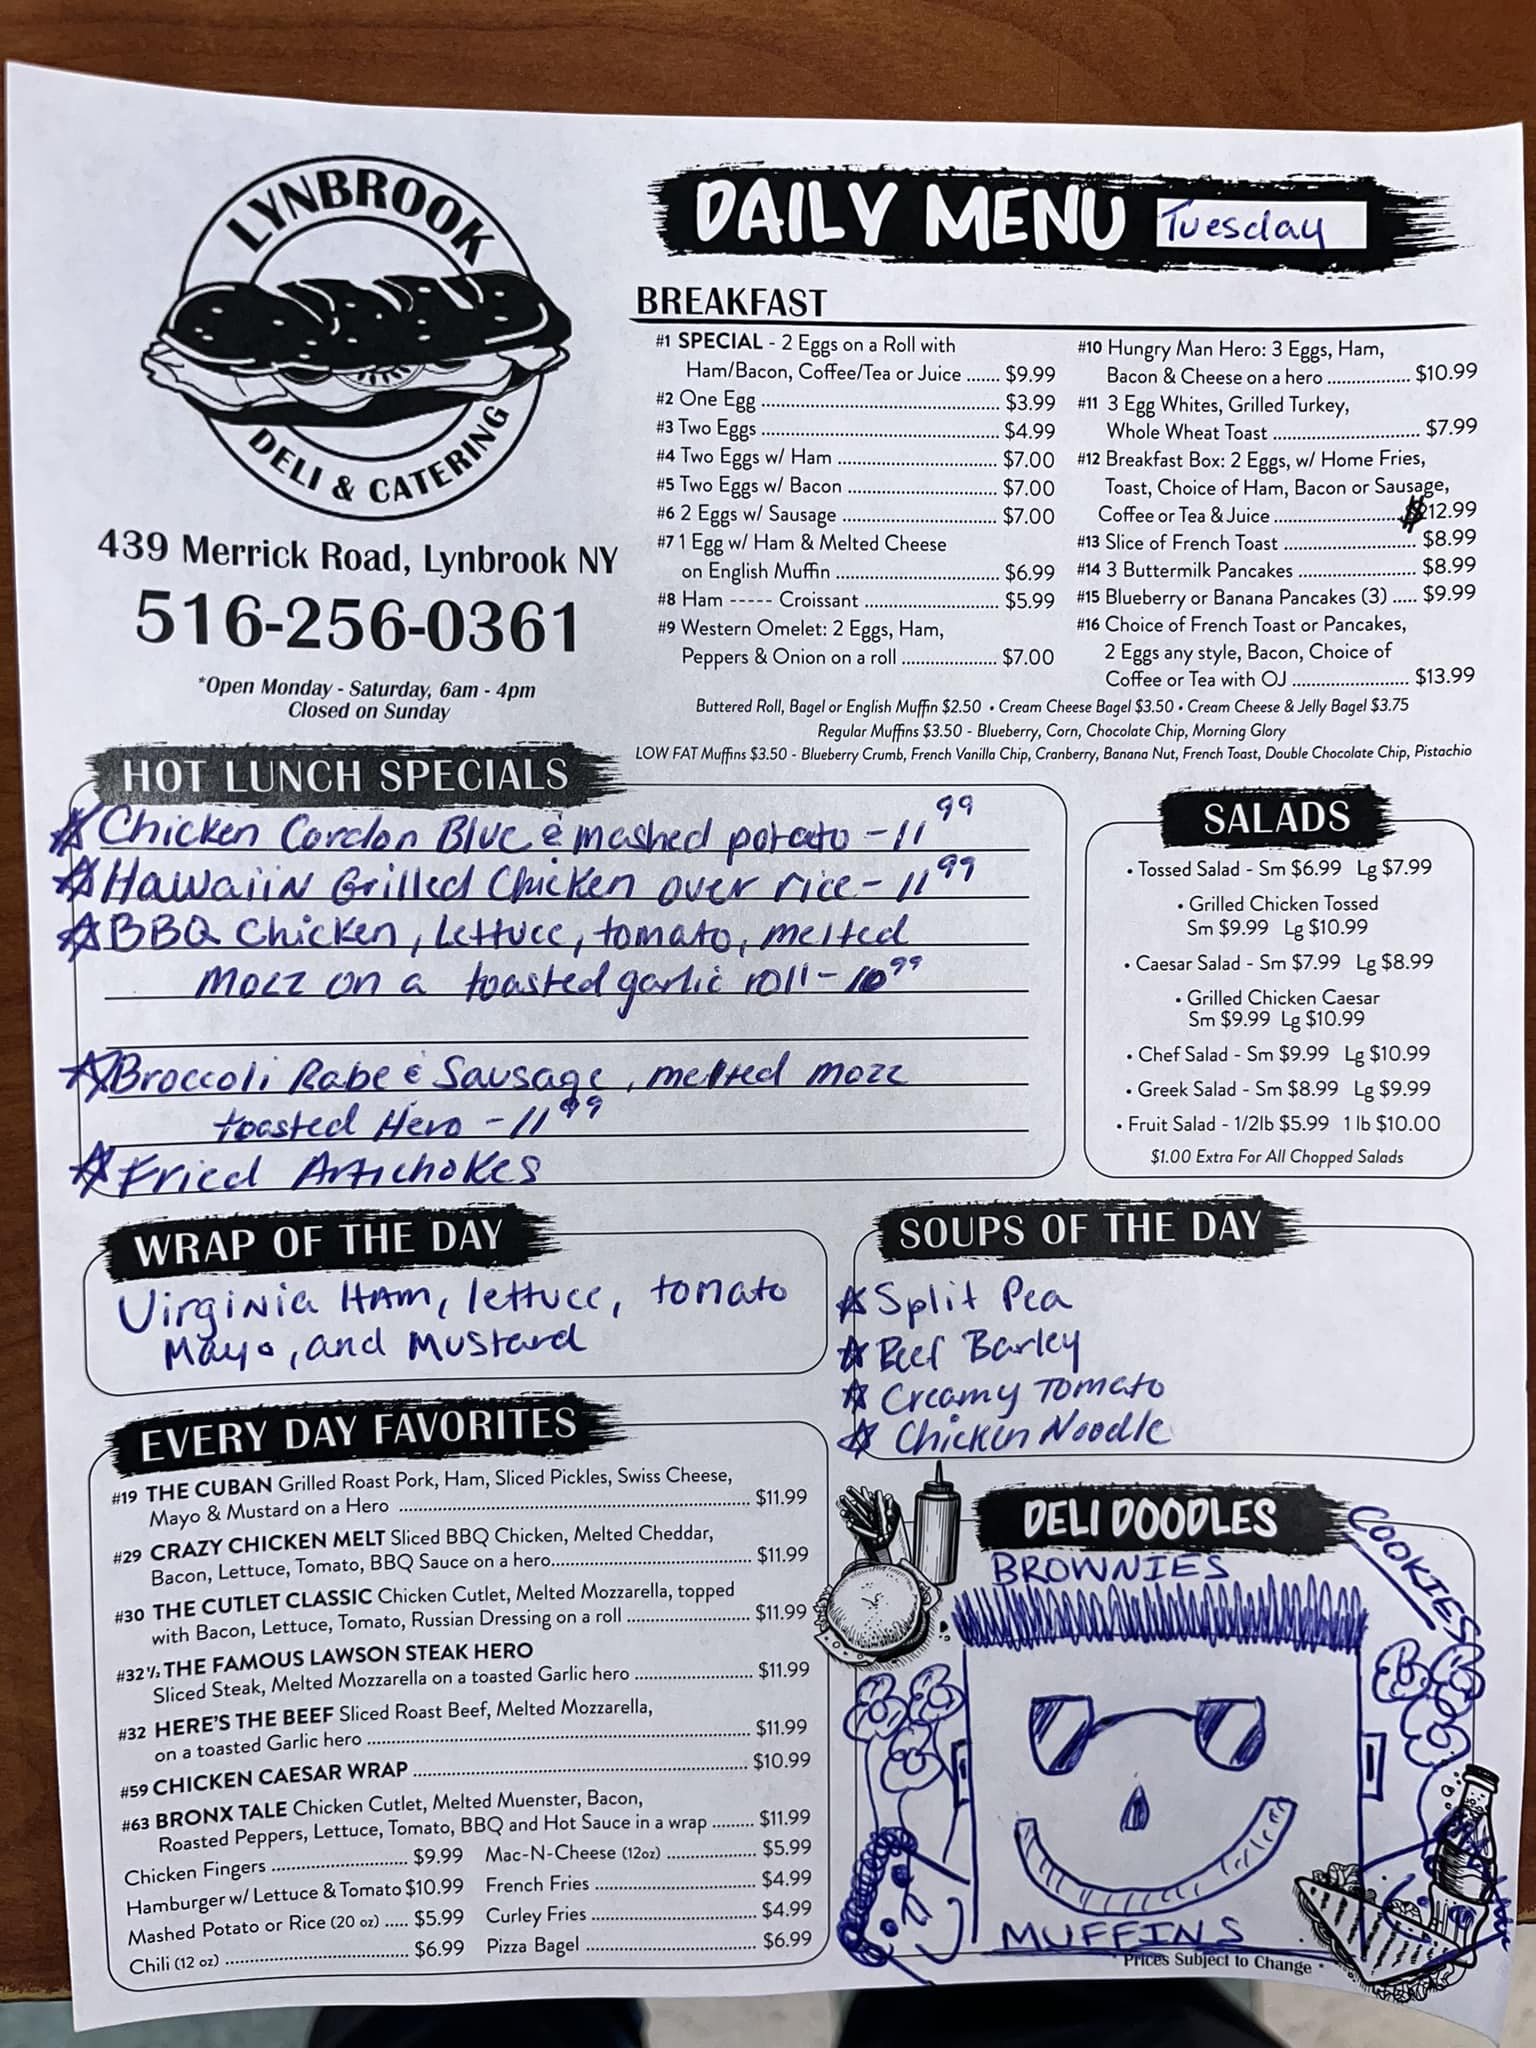 LYNBROOK
DELI & CATERING
439 Merrick Road, Lynbrook NY
516-256-0361
*Open Monday - Saturday, 6am - 4pm
Closed on Sunday
DAILY MENU Tuesday
BREAKFAST
#1 SPECIAL - 2 Eggs on a Roll with
Ham/Bacon, Coffee/Tea or Juice ....... $9.99
#2 One Egg ................................ $3.99
#3 Two Eggs ................................ $4.99
#4 Two Eggs w/ Ham ........................ $7.00
#5 Two Eggs w/ Bacon ....................... $7.00
#6 2 Eggs w/ Sausage ....................... $7.00
#7 1 Egg w/ Ham & Melted Cheese
on English Muffin ........................ $6.99
#8 Ham ----- Croissant .................... $5.99
#9 Western Omelet: 2 Eggs, Ham,
Peppers & Onion on a roll .............. $7.00
#10 Hungry Man Hero: 3 Eggs, Ham,
Bacon & Cheese on a hero ................ $10.99
#11 3 Egg Whites, Grilled Turkey,
Whole Wheat Toast ........................ $7.99
#12 Breakfast Box: 2 Eggs, w/ Home Fries,
Toast, Choice of Ham, Bacon or Sausage,
Coffee or Tea & Juice ...................... $12.99
#13 Slice of French Toast ...................... $8.99
#14 3 Buttermilk Pancakes .................... $8.99
#15 Blueberry or Banana Pancakes (3) ..... $9.99
#16 Choice of French Toast or Pancakes,
2 Eggs any style, Bacon, Choice of
Coffee or Tea with OJ ...................... $13.99
Buttered Roll, Bagel or English Muffin $2.50 • Cream Cheese Bagel $3.50 • Cream Cheese & Jelly Bagel $3.75
Regular Muffins $3.50 - Blueberry, Corn, Chocolate Chip, Morning Glory
LOW FAT Muffins $3.50 - Blueberry Crumb, French Vanilla Chip, Cranberry, Banana Nut, French Toast, Double Chocolate Chip, Pistachio
HOT LUNCH SPECIALS
Chicken Cordon Blue & mashed potato - 11 99
Hawaiin Grilled Chicken over rice - 11 99
BBQ Chicken, lettuce, tomato, melted
Mozz on a toasted garlic roll - 10 99
Broccoli Rabe & Sausage, melted mozz
toasted Hero - 11 99
Fried Artichokes
SALADS
• Tossed Salad - Sm $6.99 Lg $7.99
• Grilled Chicken Tossed
Sm $9.99 Lg $10.99
• Caesar Salad - Sm $7.99 Lg $8.99
• Grilled Chicken Caesar
Sm $9.99 Lg $10.99
• Chef Salad - Sm $9.99 Lg $10.99
• Greek Salad - Sm $8.99 Lg $9.99
• Fruit Salad - 1/2lb $5.99 1 lb $10.00
$1.00 Extra For All Chopped Salads
WRAP OF THE DAY
Virginia HAM, lettuce, tomato
Mayo, and Mustard
SOUPS OF THE DAY
Split Pea
Beef Barley
Creamy Tomato
Chicken Noodle
EVERY DAY FAVORITES
#19 THE CUBAN Grilled Roast Pork, Ham, Sliced Pickles, Swiss Cheese,
Mayo & Mustard on a Hero ........................ $11.99
#29 CRAZY CHICKEN MELT Sliced BBQ Chicken, Melted Cheddar,
Bacon, Lettuce, Tomato, BBQ Sauce on a hero........................ $11.99
#30 THE CUTLET CLASSIC Chicken Cutlet, Melted Mozzarella, topped
with Bacon, Lettuce, Tomato, Russian Dressing on a roll ................ $11.99
#32½ THE FAMOUS LAWSON STEAK HERO
Sliced Steak, Melted Mozzarella on a toasted Garlic hero ................ $11.99
#32 HERE'S THE BEEF Sliced Roast Beef, Melted Mozzarella,
on a toasted Garlic hero ........................ $11.99
#59 CHICKEN CAESAR WRAP ........................ $10.99
#63 BRONX TALE Chicken Cutlet, Melted Muenster, Bacon,
Roasted Peppers, Lettuce, Tomato, BBQ and Hot Sauce in a wrap ......... $11.99
Chicken Fingers ........................ $9.99
Hamburger w/ Lettuce & Tomato $10.99
Mashed Potato or Rice (20 oz) ..... $5.99
Chili (12 oz) ........................ $6.99
Mac-N-Cheese (12oz) ................ $5.99
French Fries ........................ $4.99
Curley Fries ........................ $4.99
Pizza Bagel ........................ $6.99
DELI DOODLES
BROWNIES
COOKIES
MUFFINS
* Prices Subject to Change *